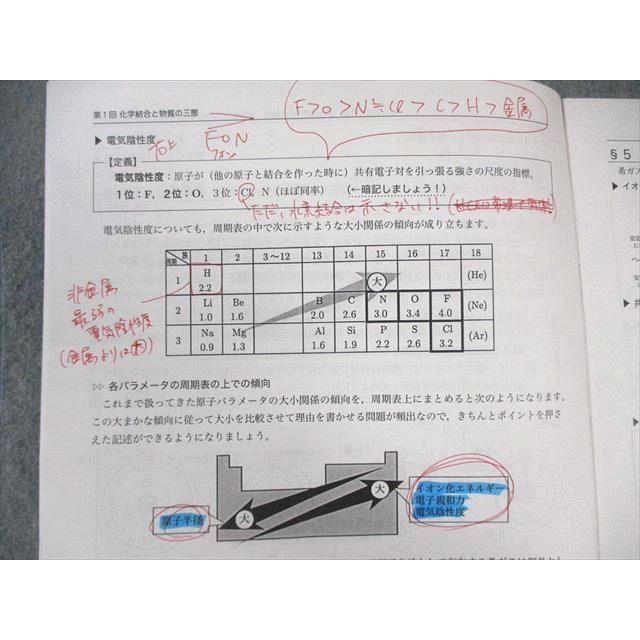 第1回 化学結合と物質の三態
F>O>N≒Cl>C>H>金属
▶ 電気陰性度
右上
FON
フォン
【定義】
電気陰性度：原子が（他の原子と結合を作った時に）共有電子対を引っ張る強さの尺度の指標。
1位：F，2位：O，3位：Cl，N（ほぼ同率） （←暗記しましょう！）
ただし水素結合は示さない!!
電気陰性度についても，周期表の中で次に示すような大小関係の傾向が成り立ちます。
周期 族 1 2 3～12 13 14 15 16 17 18
1 H 2.2 大 (He)
2 Li 1.0 Be 1.6 B 2.0 C 2.6 N 3.0 O 3.4 F 4.0 (Ne)
3 Na 0.9 Mg 1.3 Al 1.6 Si 1.9 P 2.2 S 2.6 Cl 3.2 (Ar)
非金属
最弱の
電気陰性度
(金属よりは大)
▷▷ 各パラメータの周期表の上での傾向
これまで扱ってきた原子パラメータの大小関係の傾向を，周期表上にまとめると次のようになります。
この大まかな傾向に従って大小を比較させて理由を書かせる問題が頻出なので，きちんとポイントを押さ
えた記述ができるようになりましょう。
原子半径
大
大
イオン化エネルギー
電子親和力
電気陰性度
§5
希ガス
▶ イオ
▶ 共